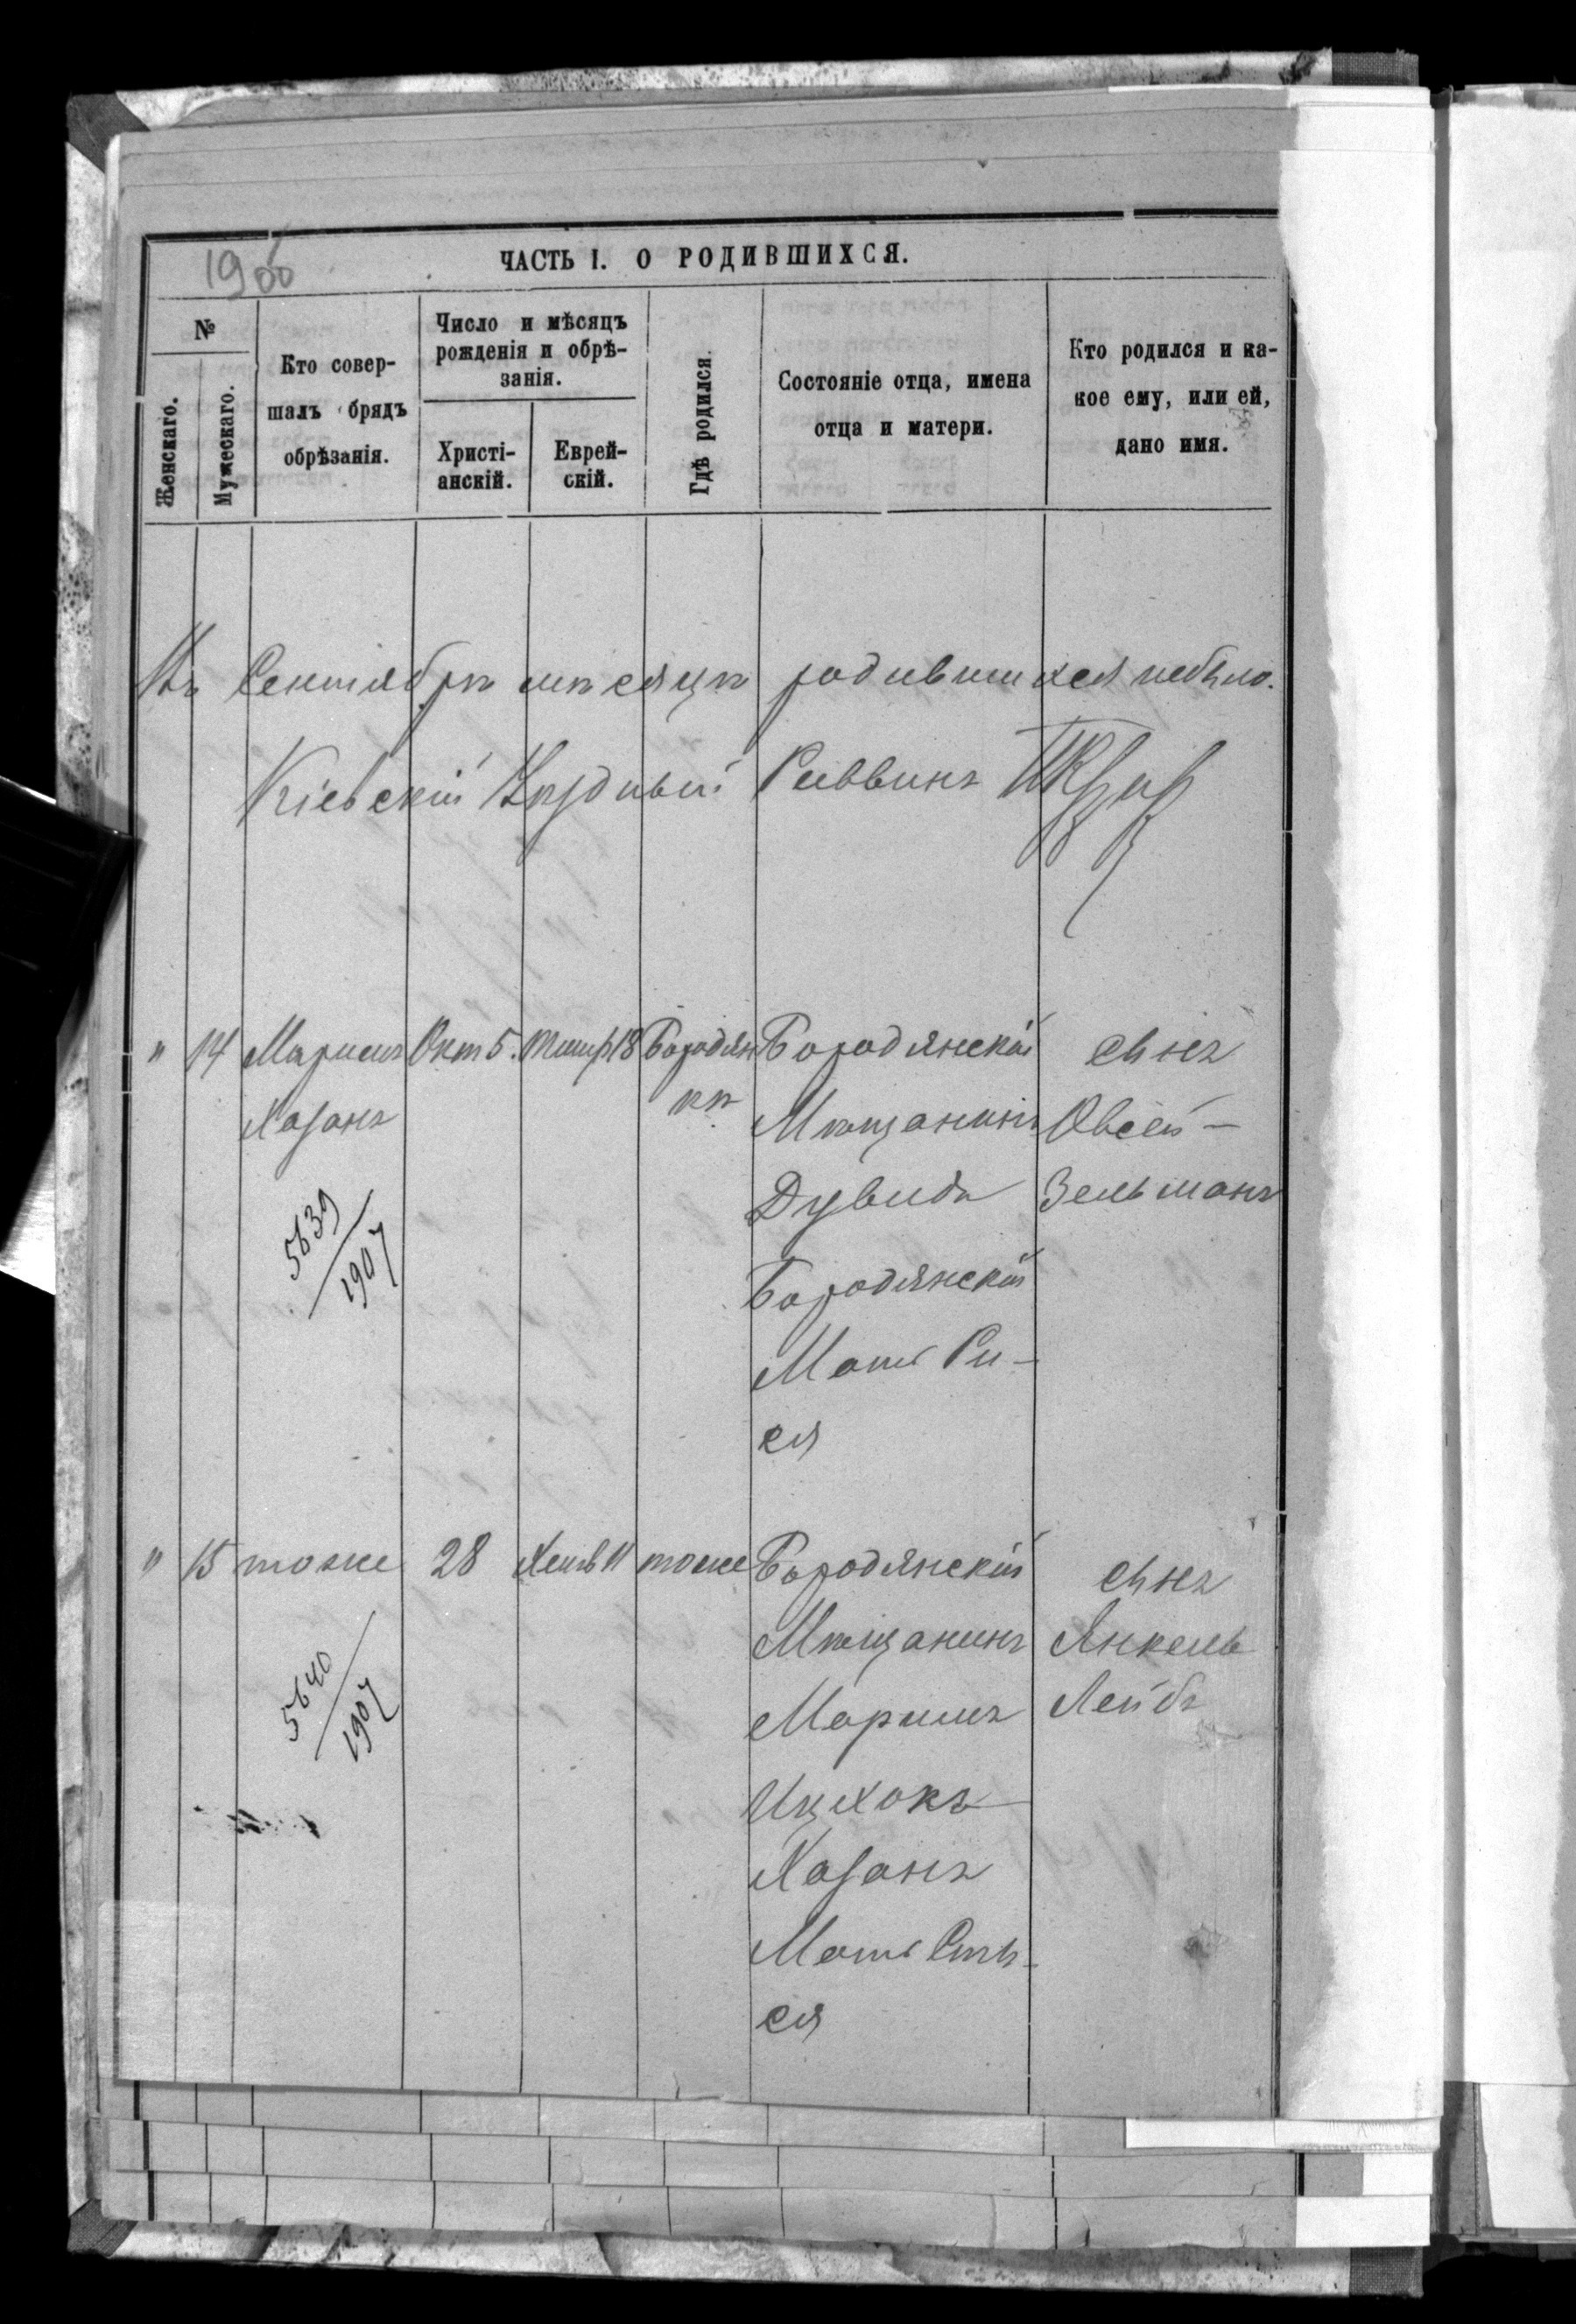 1900
ЧАСТЬ I. О РОДИВШИХСЯ.
№
Женскаго.
Мужескаго.
Кто совер-
шалъ брядъ
обрѣзанія.
Число и мѣсяцъ
рожденія и обрѣ-
занія.
Христі-
анскій.
Еврей-
скій.
Гдѣ родился.
Состояніе отца, имена
отца и матери.
Кто родился и ка-
кое ему, или ей,
дано имя.
Въ Сентябрѣ мѣсяцѣ родившихся небыло.
Кіевскій Уѣздный Раввинъ
" 14
Маримъ
Хазанъ
5639
1907
Окт 5.
Тишр 18
Бородян
кѣ
Бородянскій
Мѣщанинъ
Дувидъ
Бородянскій
Мать Ри-
ся
сынъ
Овсей -
Зельманъ
" 15
тоже
5640
1907
28
Хешв 11
тоже
Бородянскій
Мѣщанинъ
Маримъ
Ицхокъ
Хазанъ
Мать
ся
сынъ
Янкель
Лейбъ